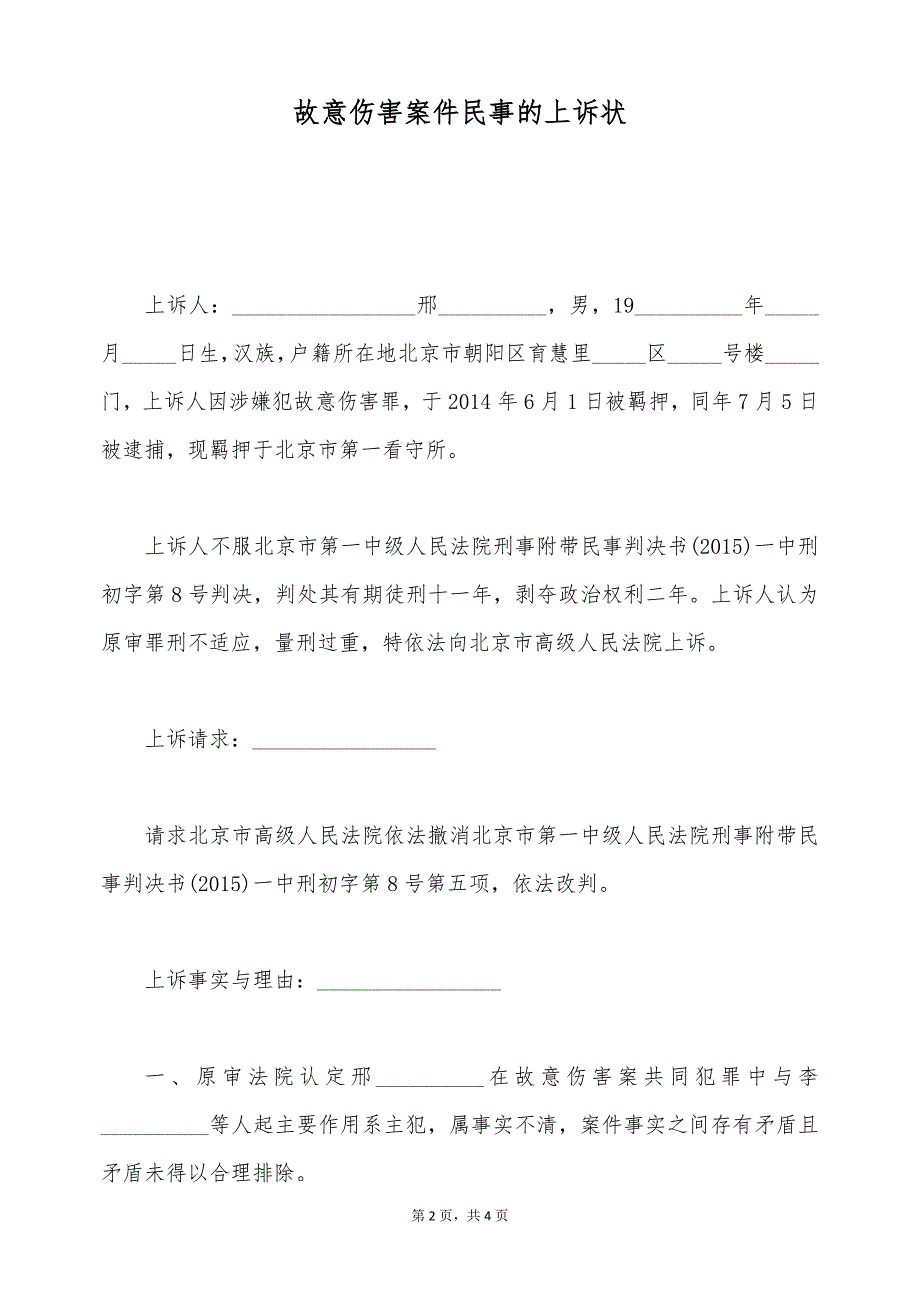 故意伤害案件民事的上诉状
上诉人：_________________邢__________，男，19__________年_____
月_____日生，汉族，户籍所在地北京市朝阳区育慧里_____区_____号楼_____
门，上诉人因涉嫌犯故意伤害罪，于 2014 年 6 月 1 日被羁押，同年 7 月 5 日
被逮捕，现羁押于北京市第一看守所。
上诉人不服北京市第一中级人民法院刑事附带民事判决书(2015)一中刑
初字第 8 号判决，判处其有期徒刑十一年，剥夺政治权利二年。上诉人认为
原审罪刑不适应，量刑过重，特依法向北京市高级人民法院上诉。
上诉请求：_________________
请求北京市高级人民法院依法撤消北京市第一中级人民法院刑事附带民
事判决书(2015)一中刑初字第 8 号第五项，依法改判。
上诉事实与理由：_________________
一、原审法院认定邢__________在故意伤害案共同犯罪中与李
__________等人起主要作用系主犯，属事实不清，案件事实之间存有矛盾且
矛盾未得以合理排除。
第 2 页，共 4 页